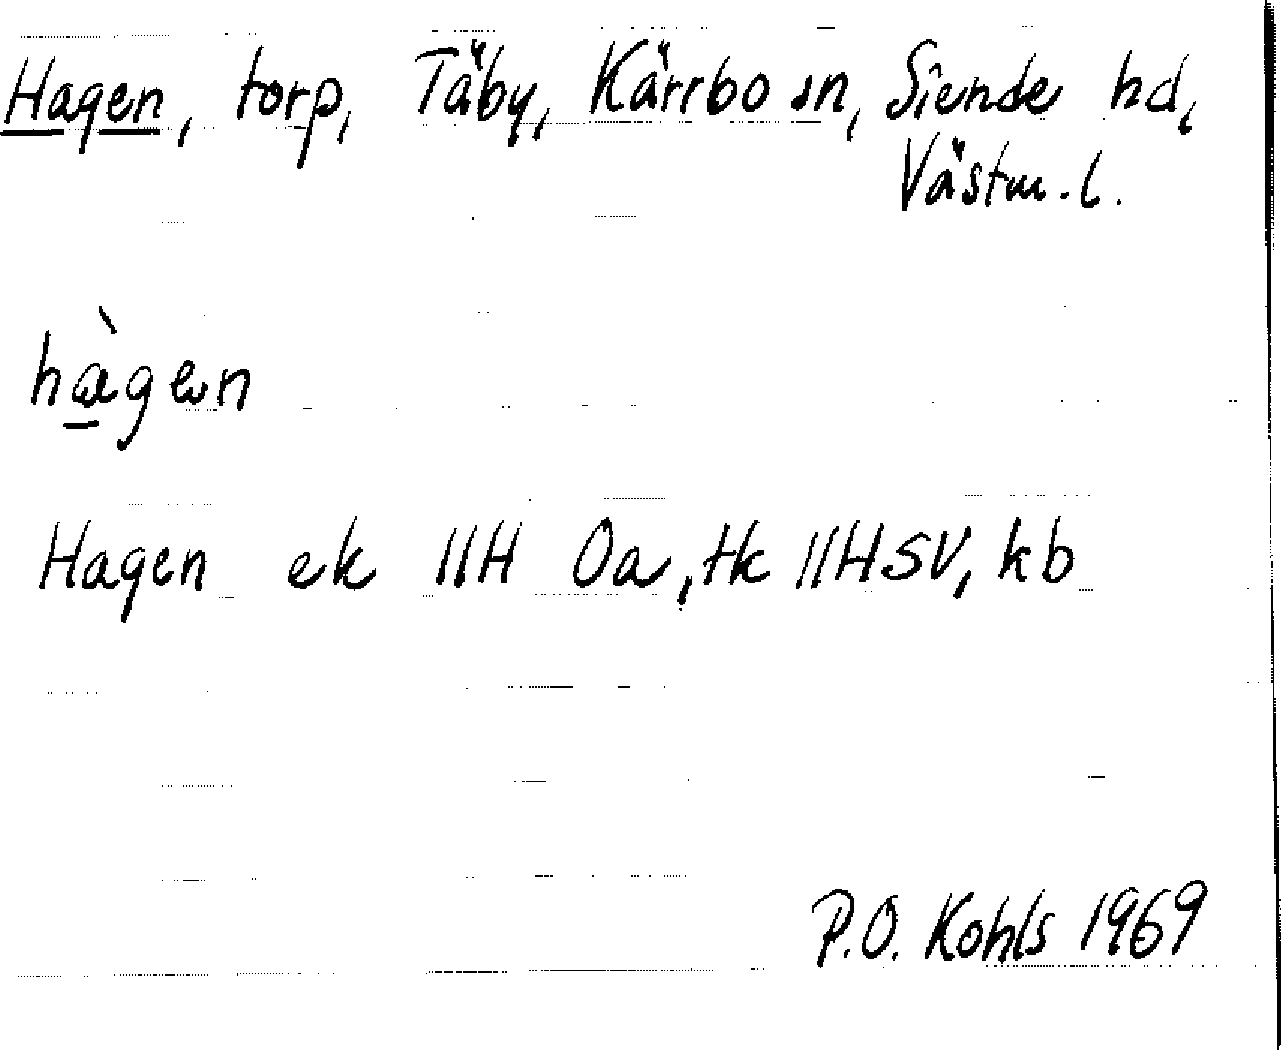 Hagen, torp, Täby, Kärrbo sn, Siende hd,
Västm. l.
hàgen
Hagen ek 11H 0a, tk 11HSV, kb
P.O. Kohls 1969